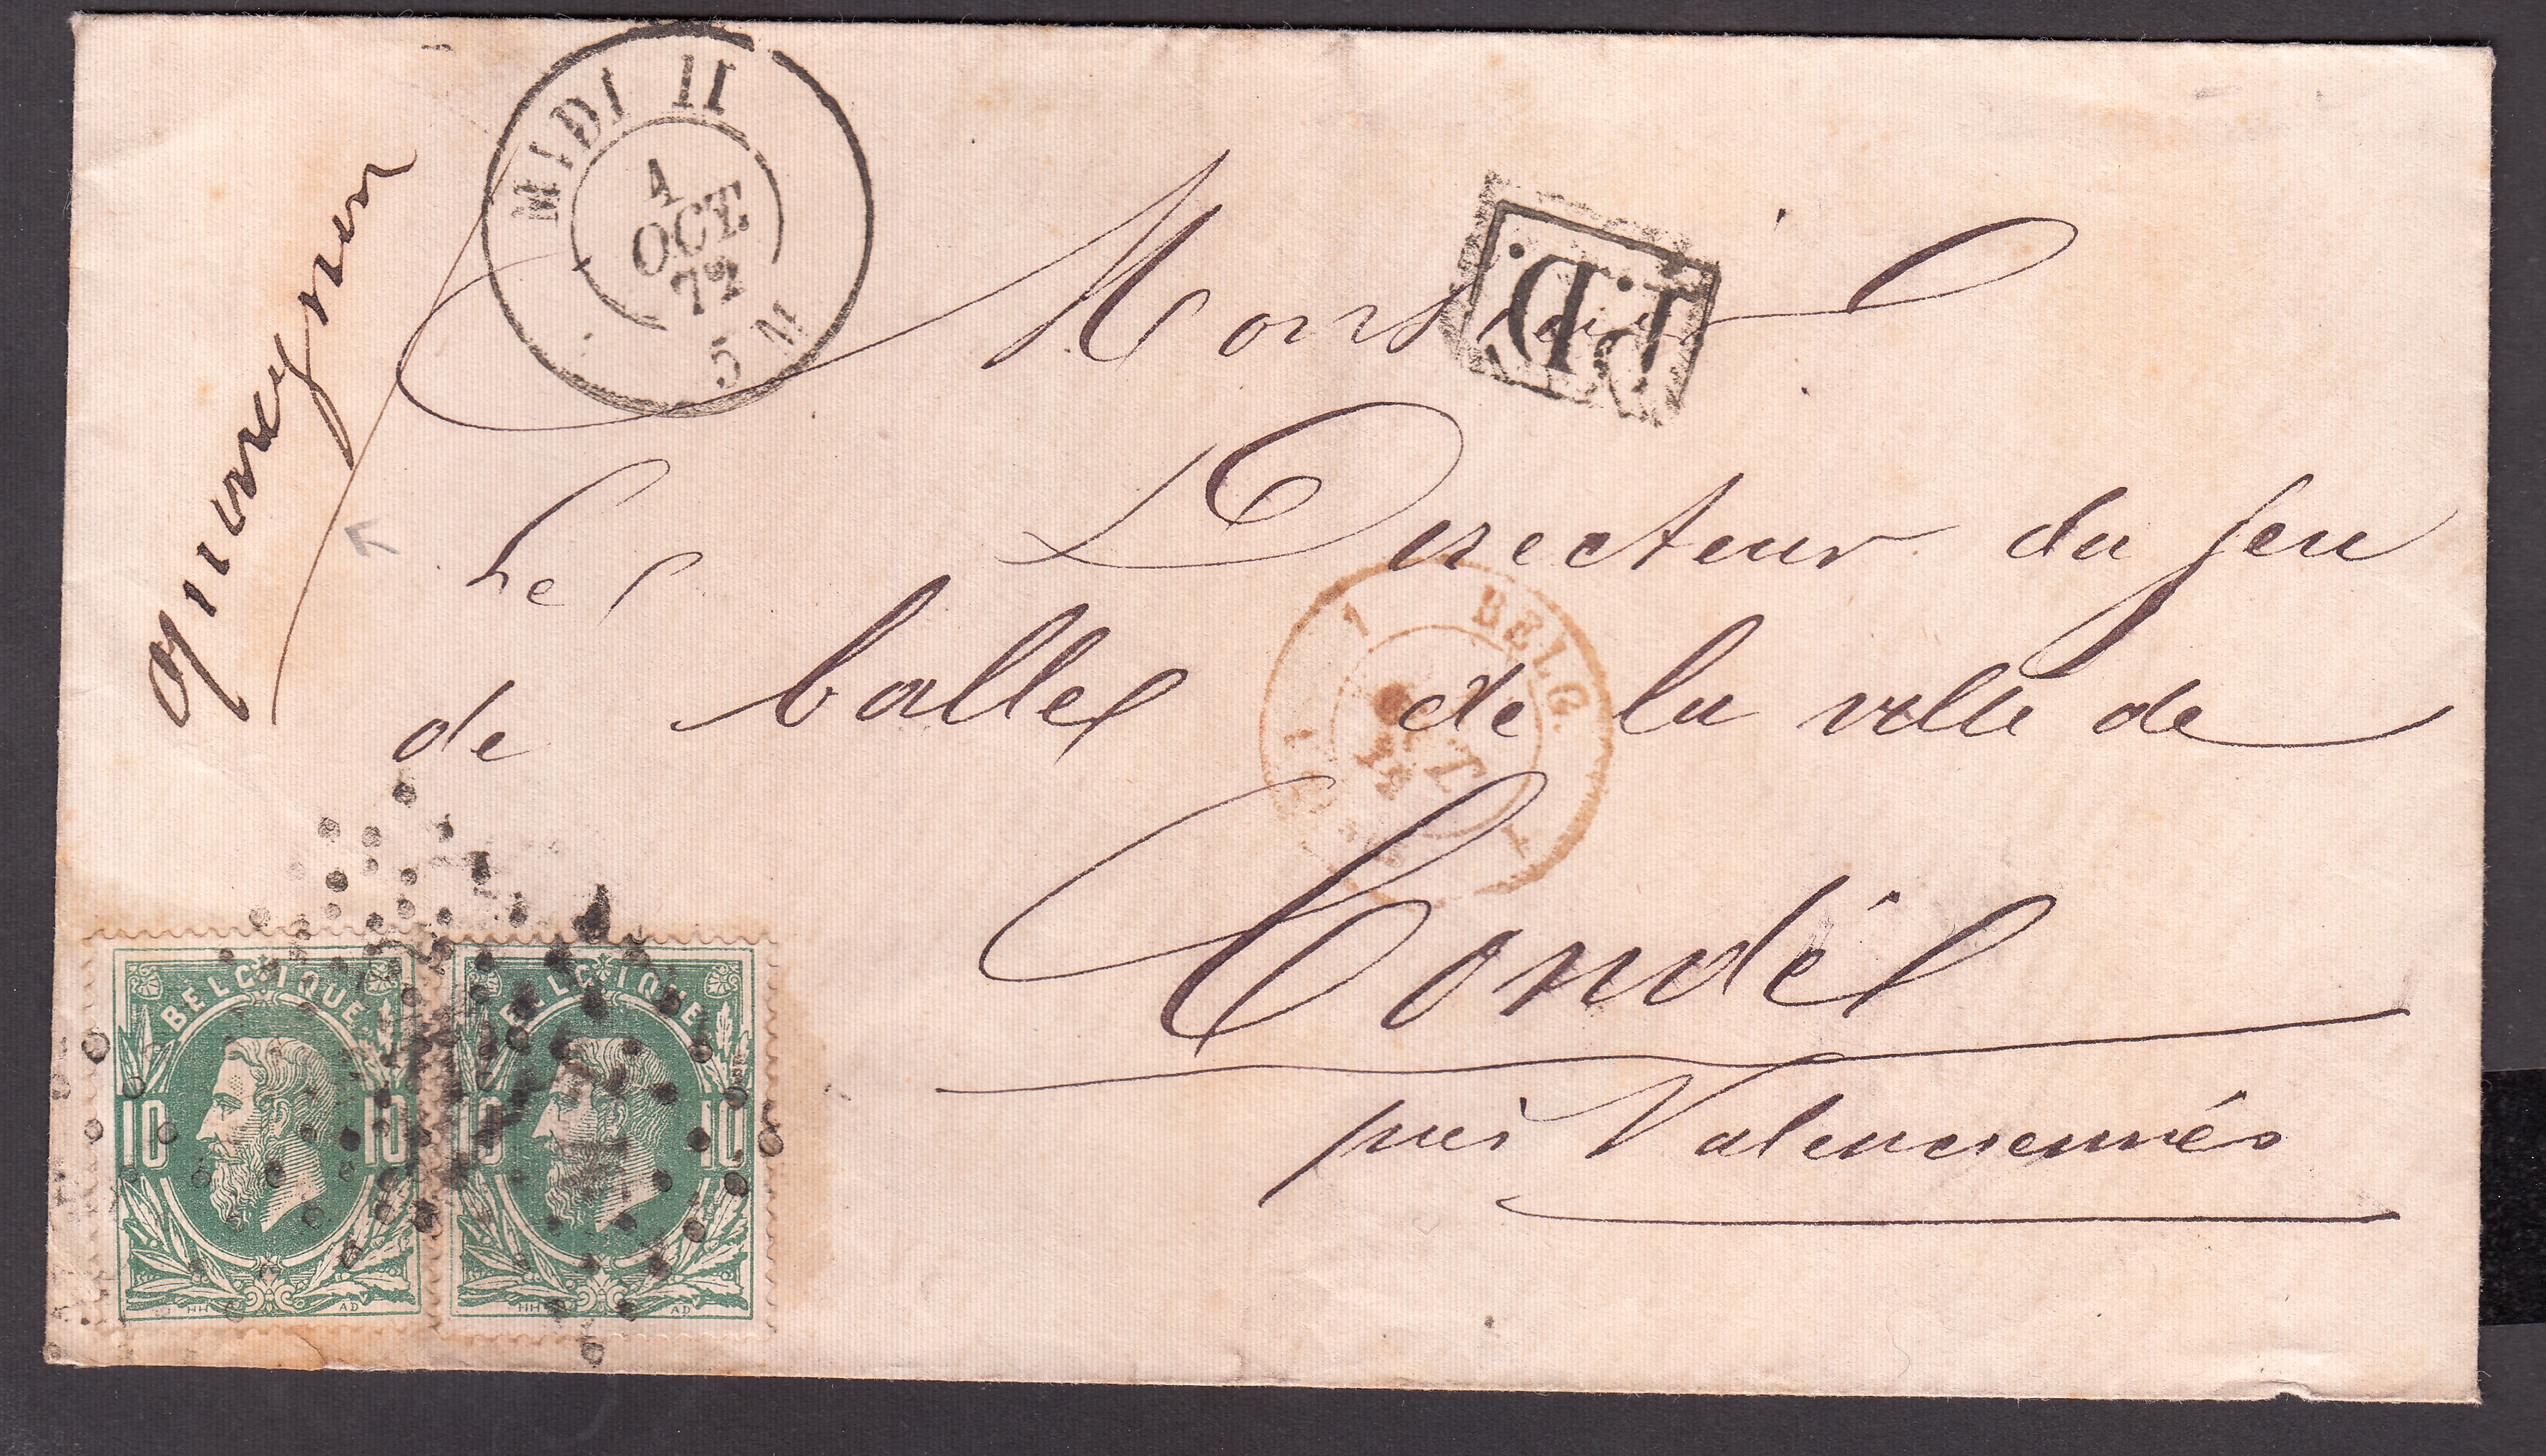 MIDI II
4
OCT.
72
5 M
P.D.
Monsieur
Le Directeur du jeu
de balles de la ville de
Condé
près Valenciennes
BELG.
BELGIQUE
10 10
HH AD
BELGIQUE
10 10
HH AD